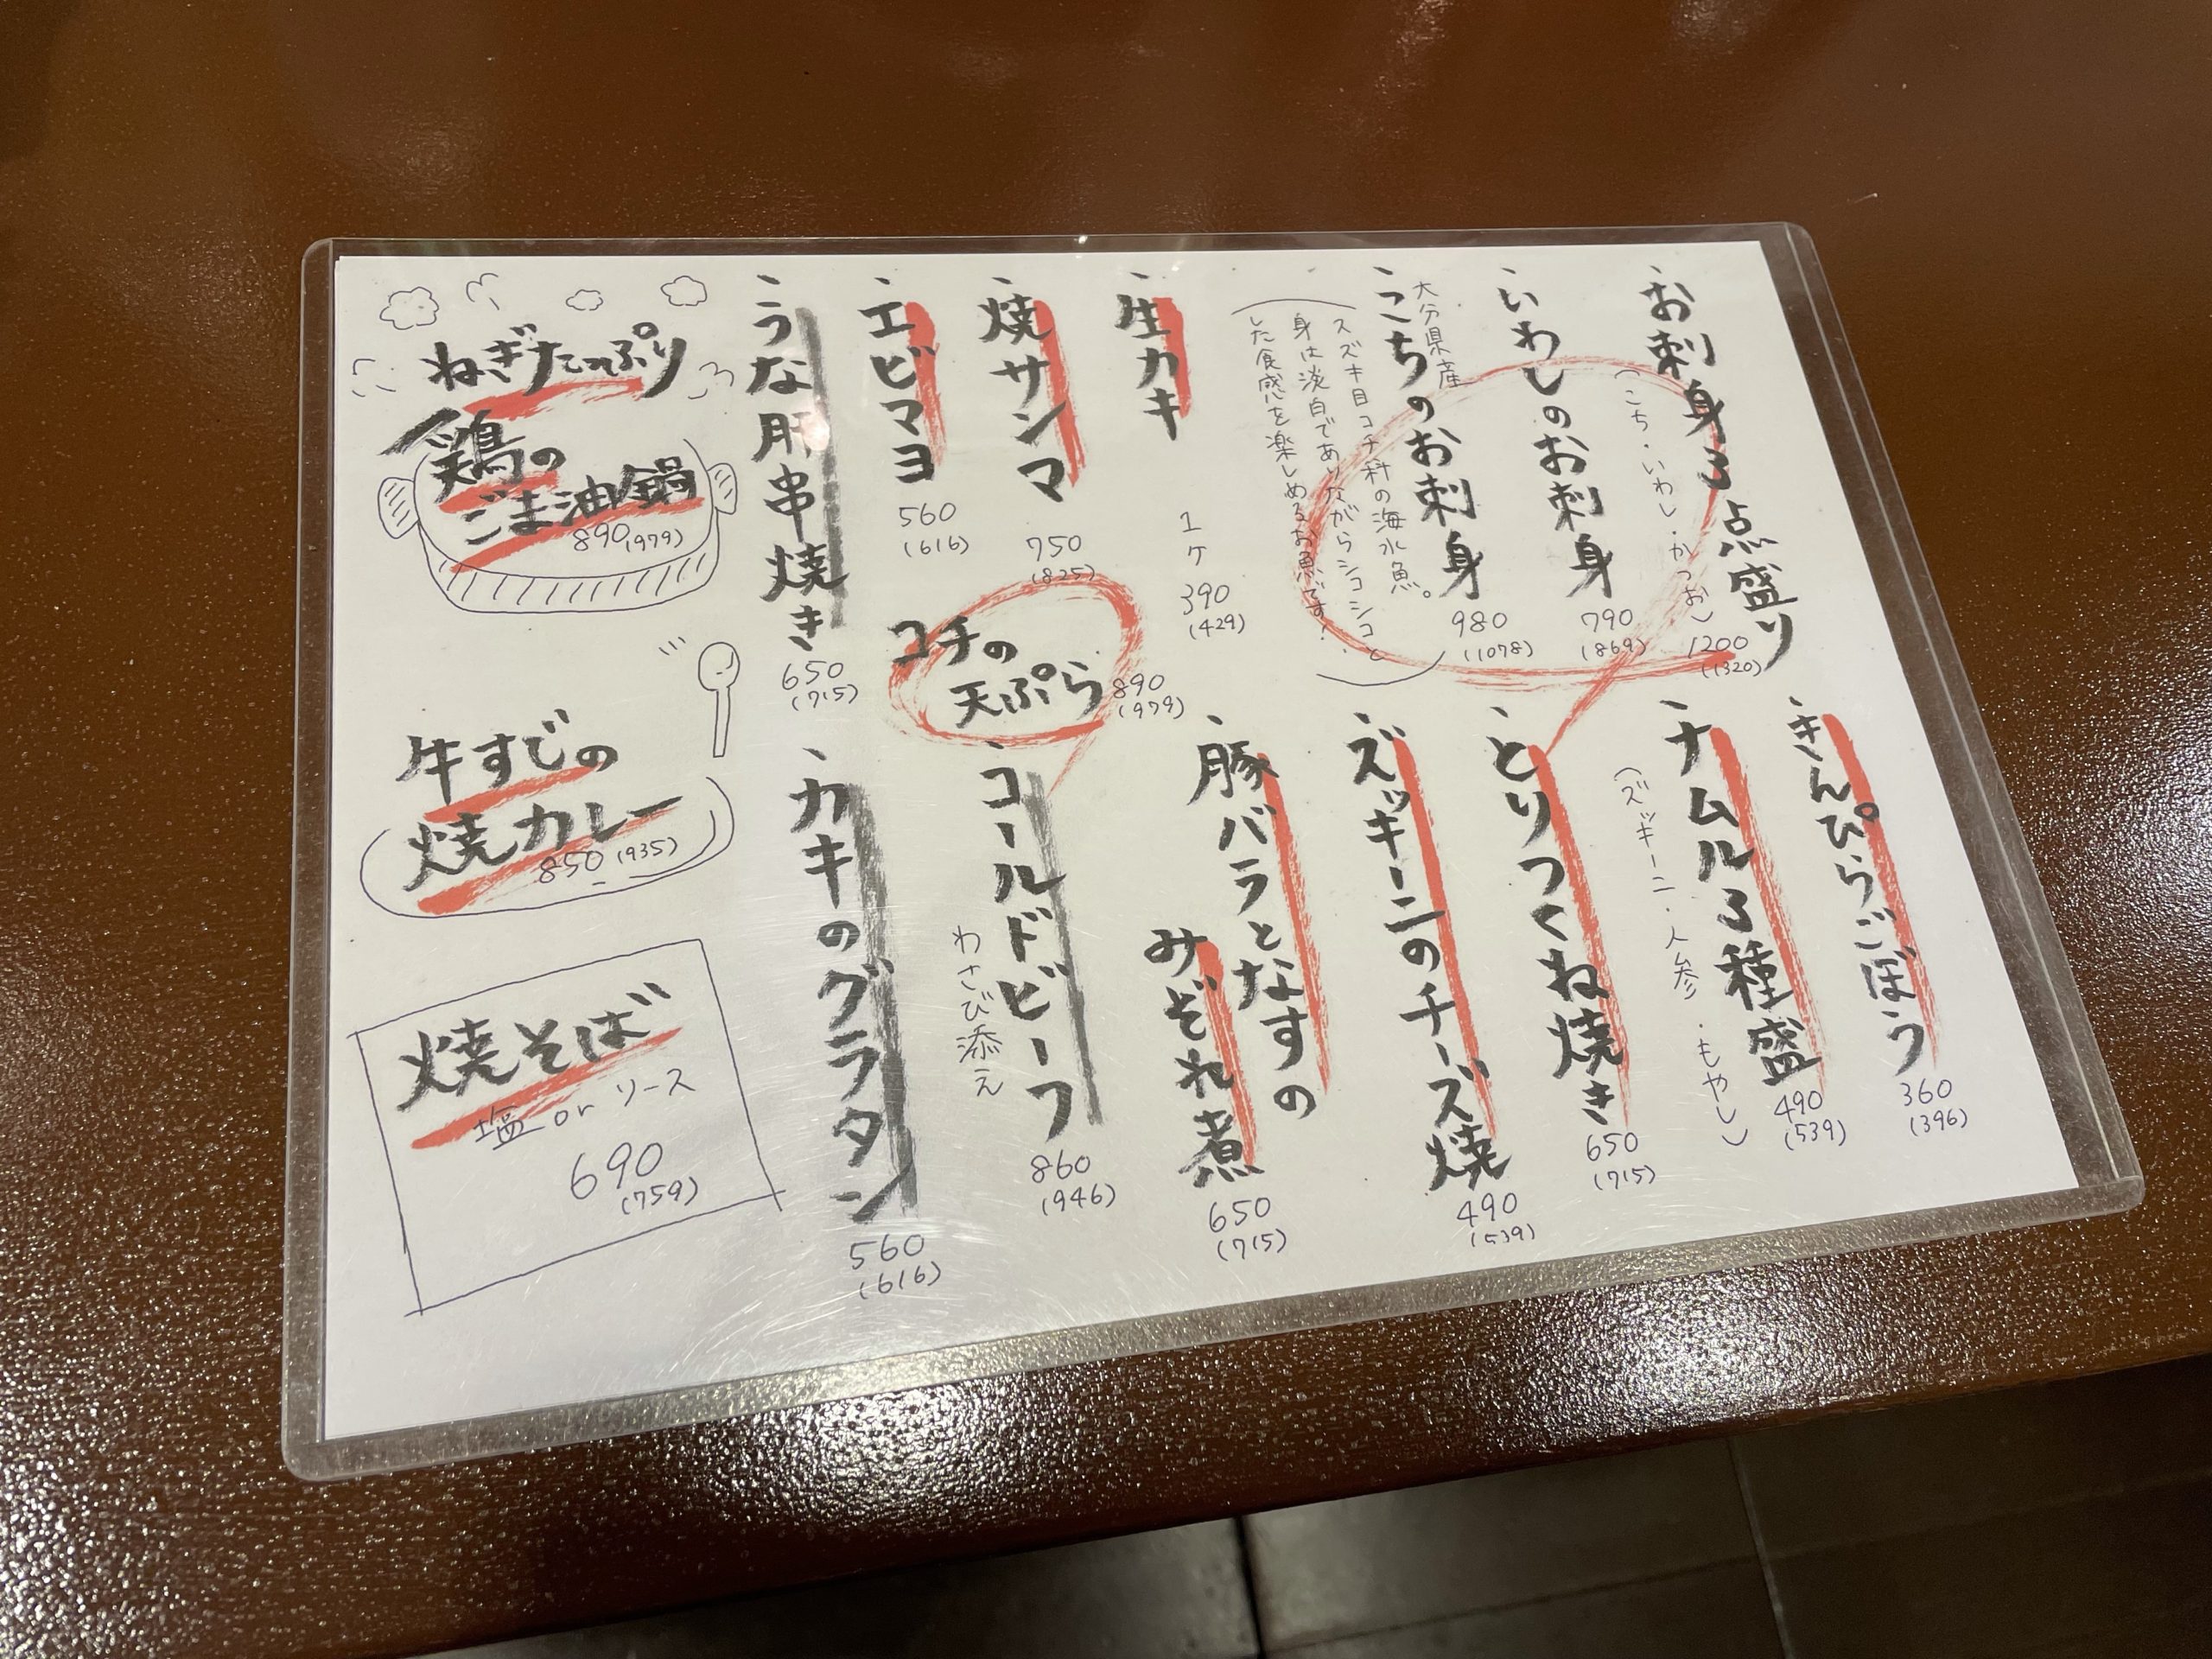 ・お刺身3点盛り
(こち・いわし・かつお)
1200
(1320)
・いわしのお刺身
790
(869)
大分県産
・こちのお刺身
980
(1078)
スズキ目コチ科の海水魚。
身は淡白でありながらシコシコと
した食感を楽しめるお魚です!
・生カキ
1ケ
390
(429)
・焼サンマ
750
(825)
・エビマヨ
560
(616)
コチの
天ぷら
890
(979)
・うな肝串焼き
650
(715)
・きんぴらごぼう
360
(396)
・ナムル3種盛
(ズッキーニ・人参・もやし)
490
(539)
・とりつくね焼き
650
(715)
・ズッキーニのチーズ焼
490
(539)
・豚バラとなすの
みぞれ煮
650
(715)
・コールドビーフ
わさび添え
860
(946)
・カキのグラタン
560
(616)
ねぎたっぷり
鶏の
ごま油鍋
890(979)
牛すじの
焼カレー
850(935)
焼そば
塩orソース
690
(759)